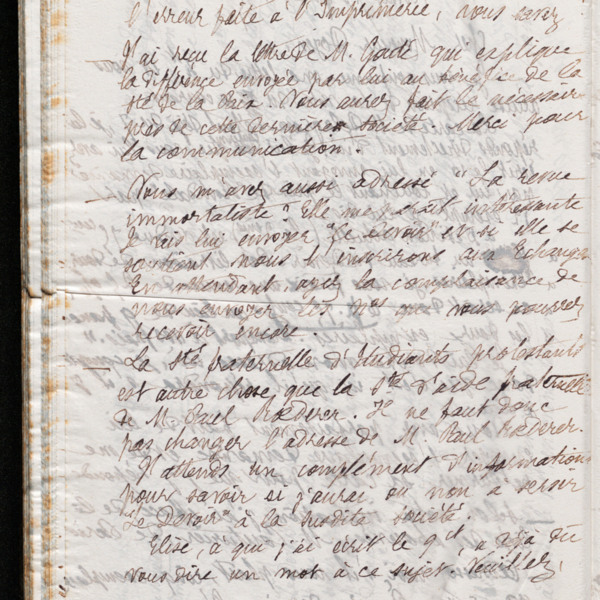 l'erreur faite à l'Imprimerie, vous savez
J'ai reçu la lettre de M. Gadé qui explique
la différence envoyée par lui au bénéfice de la
Sté de la Paix. Vous aurez fait le nécessaire
près de cette dernière société. Merci pour
la communication.
Vous m'avez aussi adressé "La revue
immortaliste". Elle me paraît intéressante
Je vais lui envoyer "Le Devoir" et si elle se
soutient nous l'inscrirons aux Echanges
En attendant, ayez la complaisance de
nous envoyer les Nos que vous pourrez
recevoir encore.
La Sté fraternelle d'Etudiants protestants
est autre chose que la Sté d'aide fraternelle
de M. Paul Rœderer. Il ne faut donc
pas changer l'adresse de M. Paul Rœderer.
J'attends un complément d'informations
pour savoir si j'aurai ou non à servir
"Le Devoir" à la susdite société
Elise, à qui j'ai écrit le 9 ct, a déjà dû
vous dire un mot à ce sujet. Veuillez,